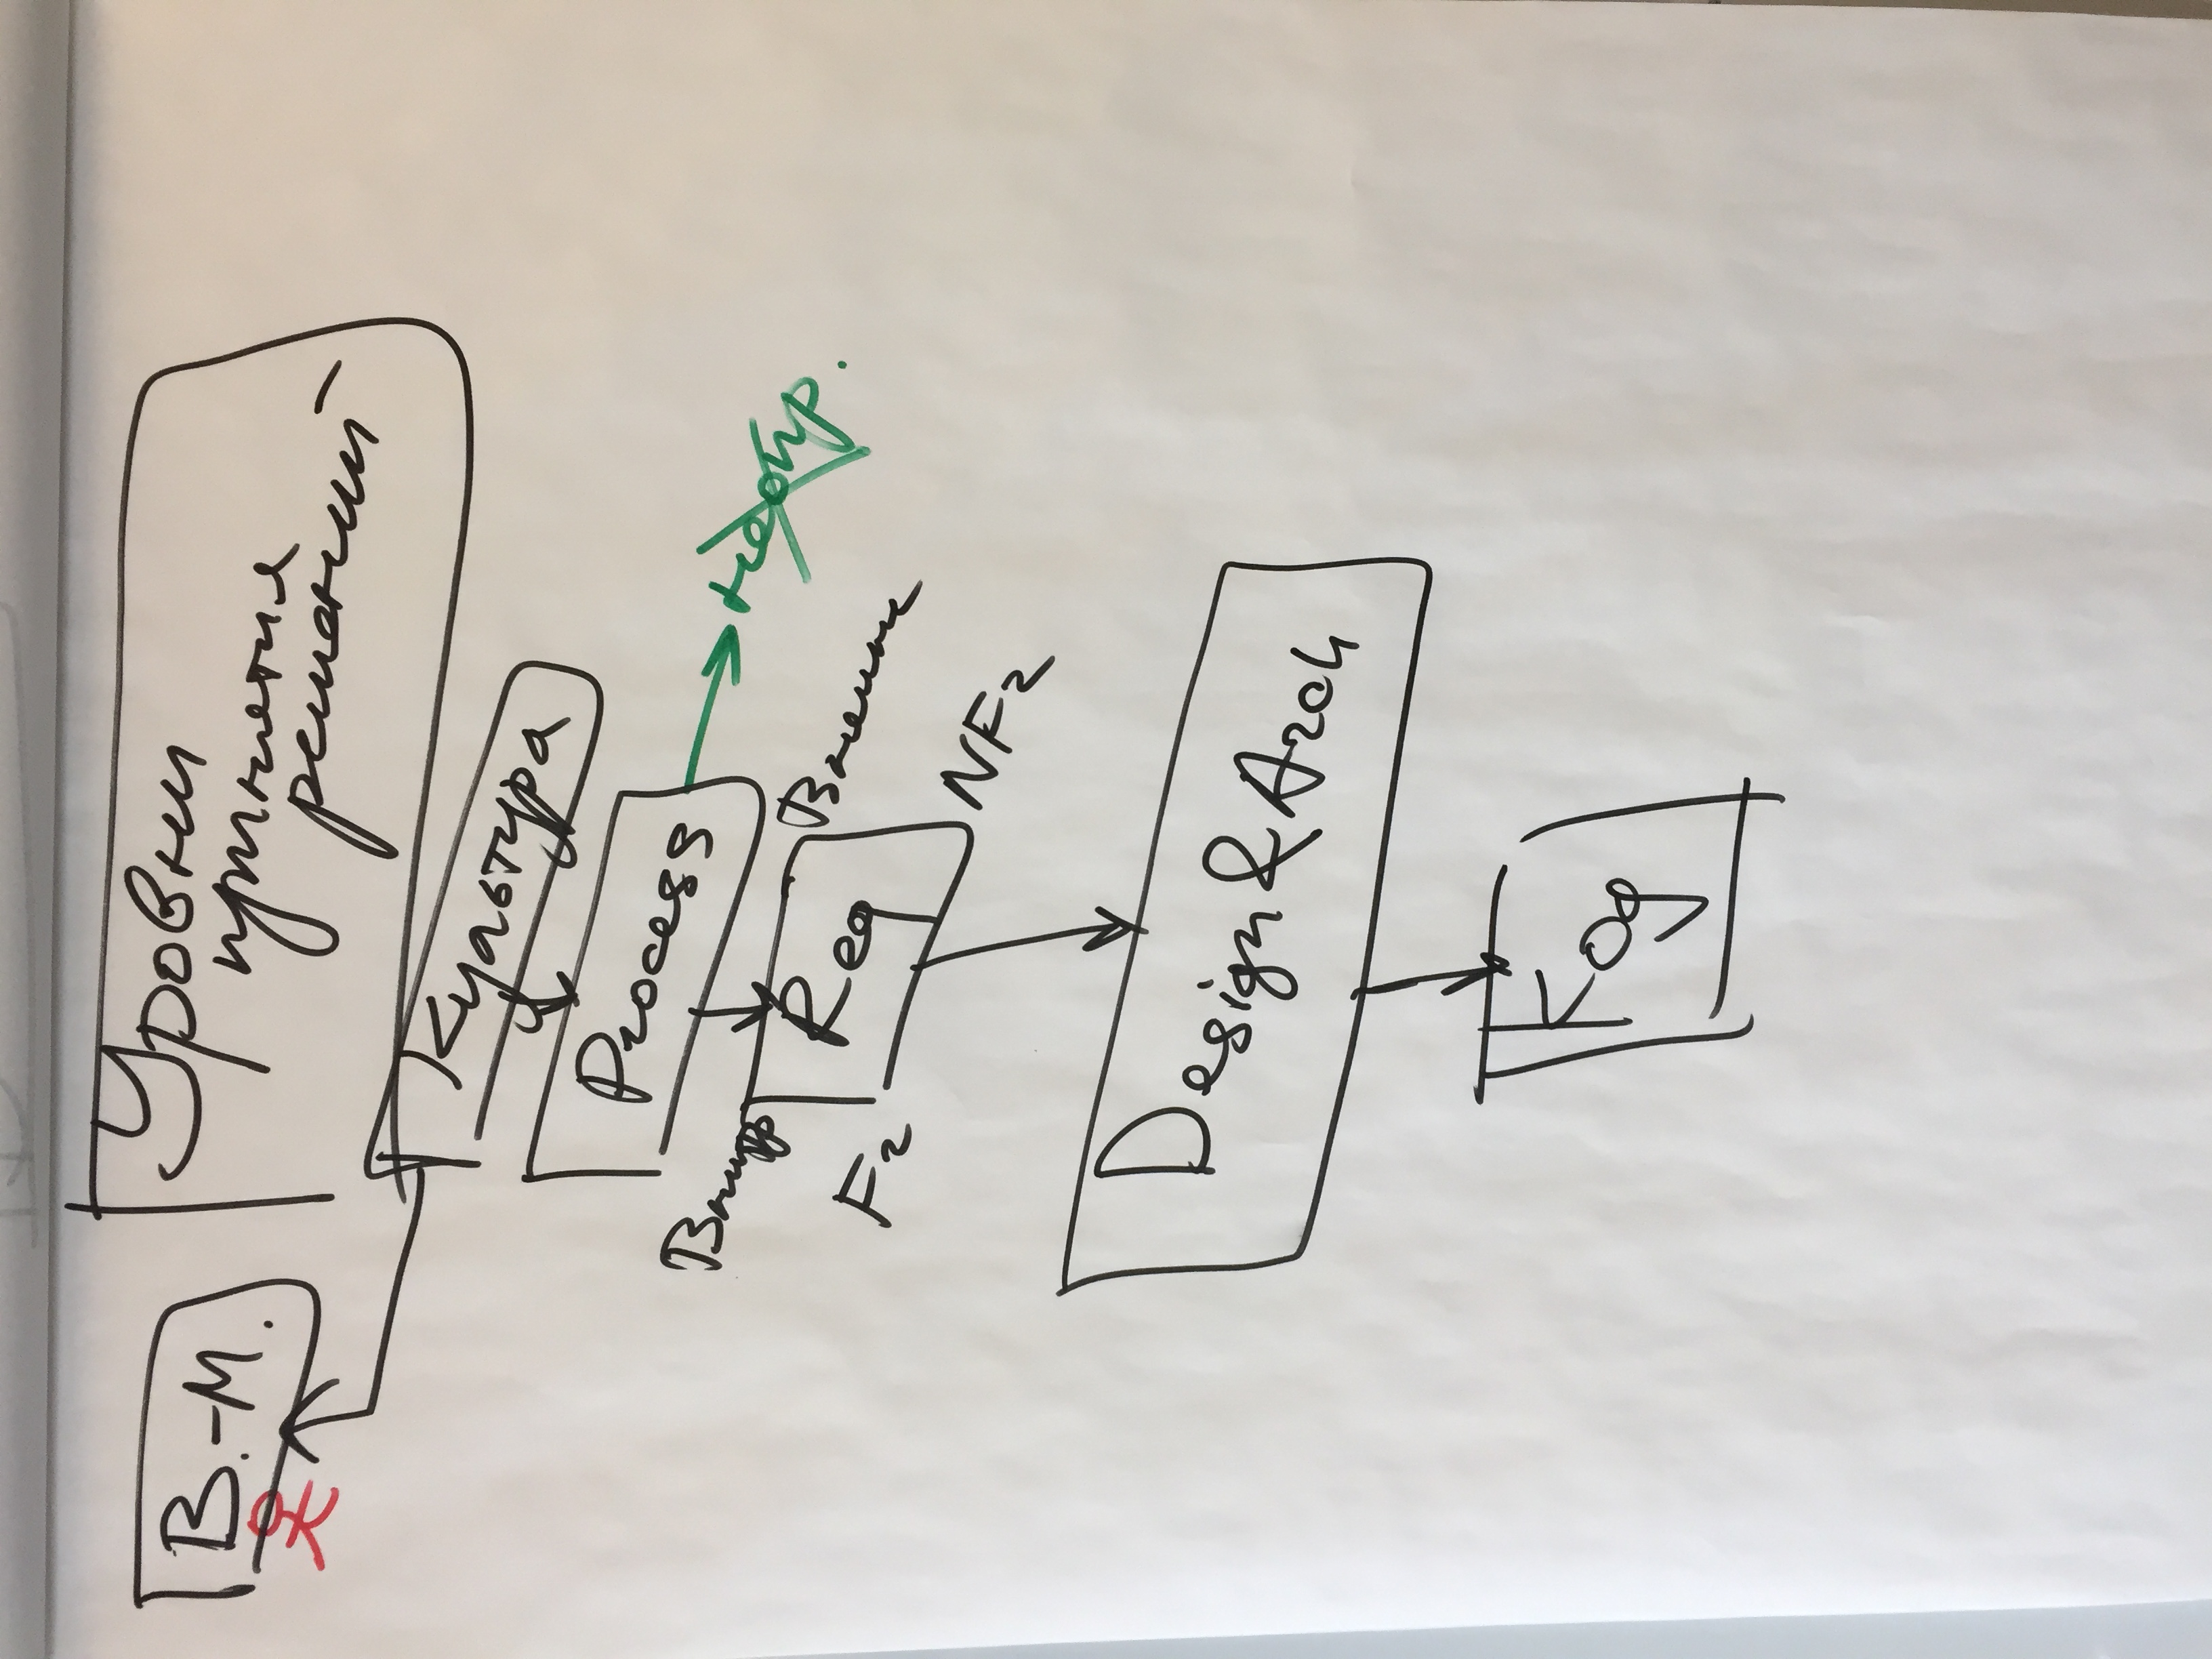 В.-М.
Уровни
принятия
решений
Культура
Process
Внутр
Req
Внешн
неопр.
Fr
NFr
Design & Arch
Код